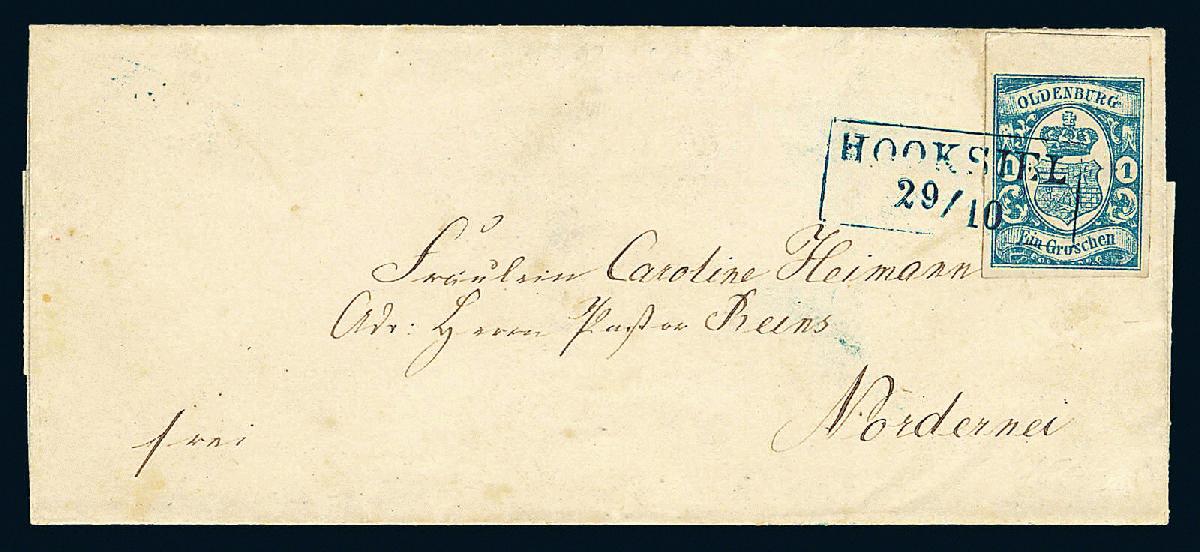 OLDENBURG
1 1
Ein Groschen
HOOKSIEL
29/10
Fräulein Caroline Heimann
Adr: Herrn Pastor Reins
Nordernei
frei